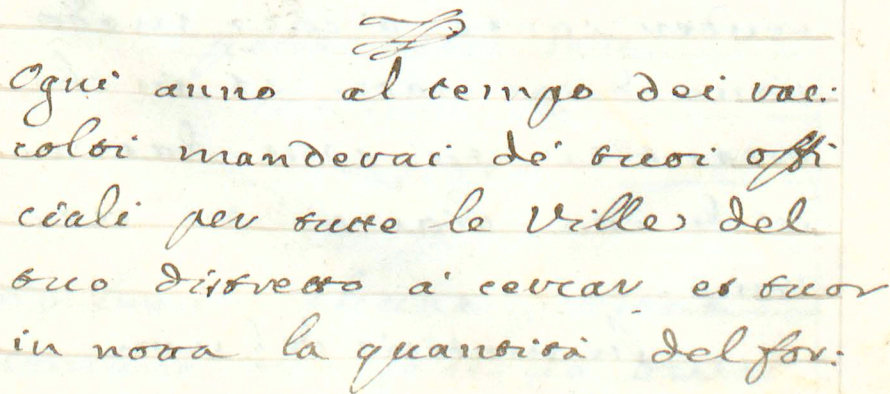 Ogni anno al tempo dei rac:
colti mandavai de' suoi offi
ciali per tutte le Ville del
suo distretto a' cercar et tuor
in notta la quantità del for: